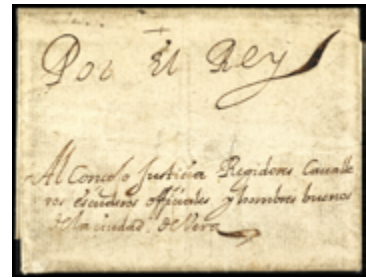 Por El Rey
Al Concejo Justicia Regidores Cavalle
ros escuderos officiales y hombres buenos
de la ciudad de Vera